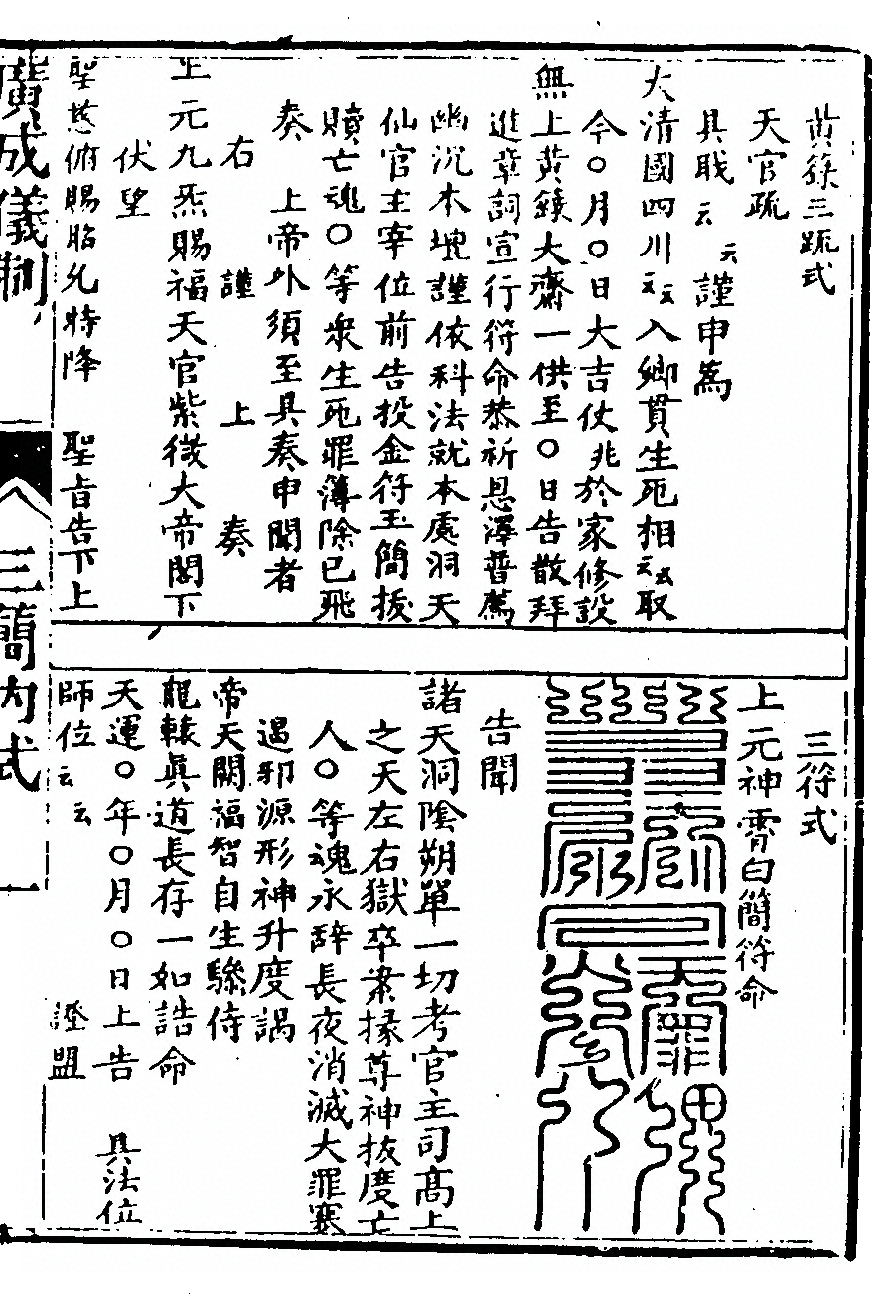 黃籙三疏式
天官疏
具職云云謹申為
大清國四川云云入鄉貫生死相云云取
今〇月〇日大吉仗兆於家修設
無上黃籙大齋一供至〇日告散拜
進章詞宣行符命恭祈恩澤普薦
幽沉本境謹依科法就本處洞天
仙官主宰位前告投金符玉簡拔
贖亡魂〇等眾生死罪簿除已飛
奏 上帝外須至具奏申聞者
右 謹 上 奏
上元九炁賜福天官紫微大帝閣下
伏望
聖慈俯賜昭允特降 聖旨告下上
三符式
上元神霄白簡符命
告聞
諸天洞陰朔單一切考官主司高上
之天左右獄卒案掾尊神拔度亡
人〇等魂永辭長夜消滅大罪塞
遏邪源形神升度謁
帝天闕福智自生驂侍
龍轅眞道長存一如誥命
天運〇年〇月〇日上告 具法位
師位云云 證盟
廣成儀制
三簡內式
一